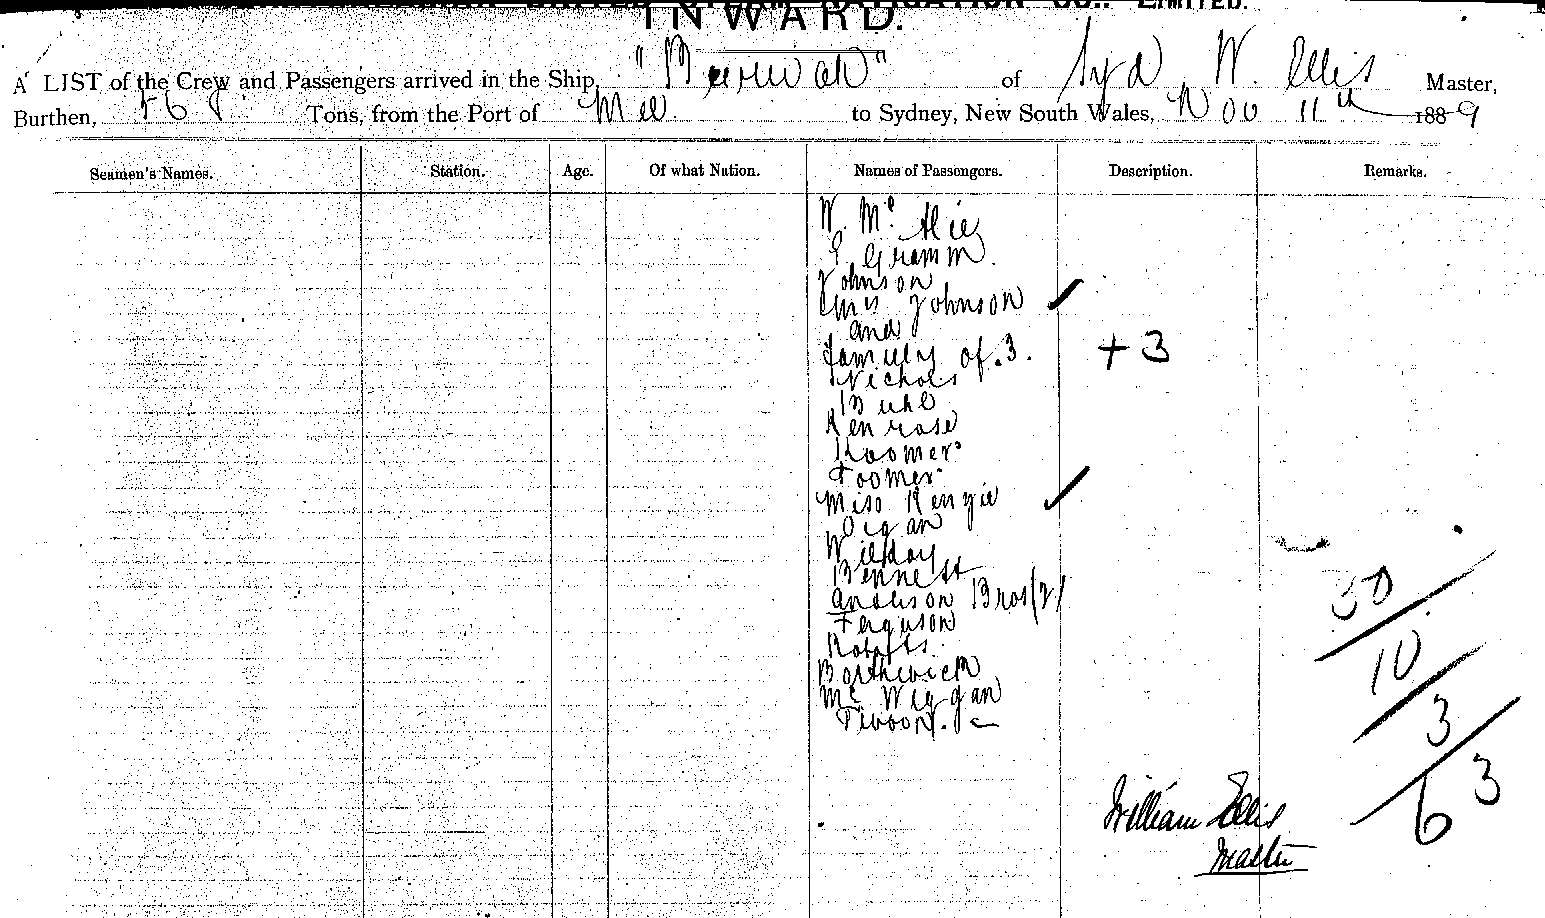 UNITED STEAM NAVIGATION CO., LIMITED.
INWARD.
A LIST of the Crew and Passengers arrived in the Ship, "Burwah" of Syd W. Ellis Master,
Burthen, 568 Tons, from the Port of to Sydney, New South Wales, Nov 11th 1889
Seamen's Names. Station. Age. Of what Nation. Names of Passengers. Description. Remarks.
W. Mc
E Gramm
Johnson
Mrs Johnson ✓
and
family of 3. + 3
Nichols
Buhl
Penrose
Roomer
Toomer
Miss Kenzie ✓
Digan
Wildoy
Bennett
Anderson Bros (2)
Ferguson
Roberts
Borthwick
Mc Wiggan
50
10
3
63
William Ellis
Master